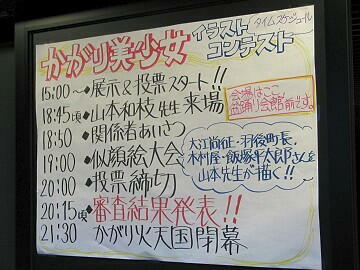 かがり美少女イラストコンテスト
タイムスケジュール
15:00〜◆展示&投票スタート!!
18:45頃◆山本和枝先生来場
会場はここ
盆踊り会館前です。
18:50 ◆関係者あいさつ
19:00 ◆似顔絵大会
大江尚征・羽後町長、
木村屋・飯塚平太郎さんを
山本先生が描く!!
20:00 ◆投票締切
20:15頃◆審査結果発表!!
21:30 かがり火天国閉幕